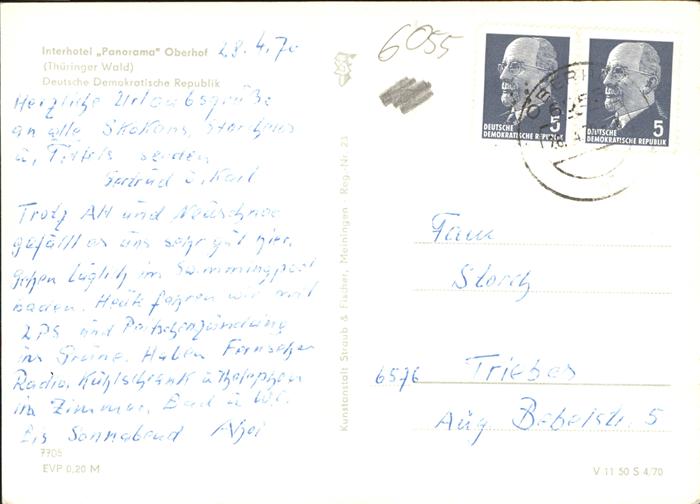 Interhotel „Panorama" Oberhof
(Thüringer Wald)
Deutsche Demokratische Republik
28.4.70
Herzliche Urlaubsgrüße
an alle Skokans, Storchens
u. Tittels senden
Gertrud u. Karl
Trotz Alt und Neuschnee
gefällt es uns sehr gut hier.
gehen täglich im Swimmingpool
baden. Heute fahren wir mit
2 PS und Peitschenzündung
ins Grüne. Haben Fernseher
Radio, Kühlschrank u. Telephon
im Zimmer, Bad u. WC.
Bis Sonnabend Ahoi
7705
EVP 0,20 M
Kunstanstalt Straub & Fischer, Meiningen · Reg.-Nr. 23
6055
DEUTSCHE
DEMOKRATISCHE REPUBLIK
5
DEUTSCHE
DEMOKRATISCHE REPUBLIK
5
Frau
Storch
6576 Triebes
Aug. Bebelstr. 5
V 11 50 S 4/70